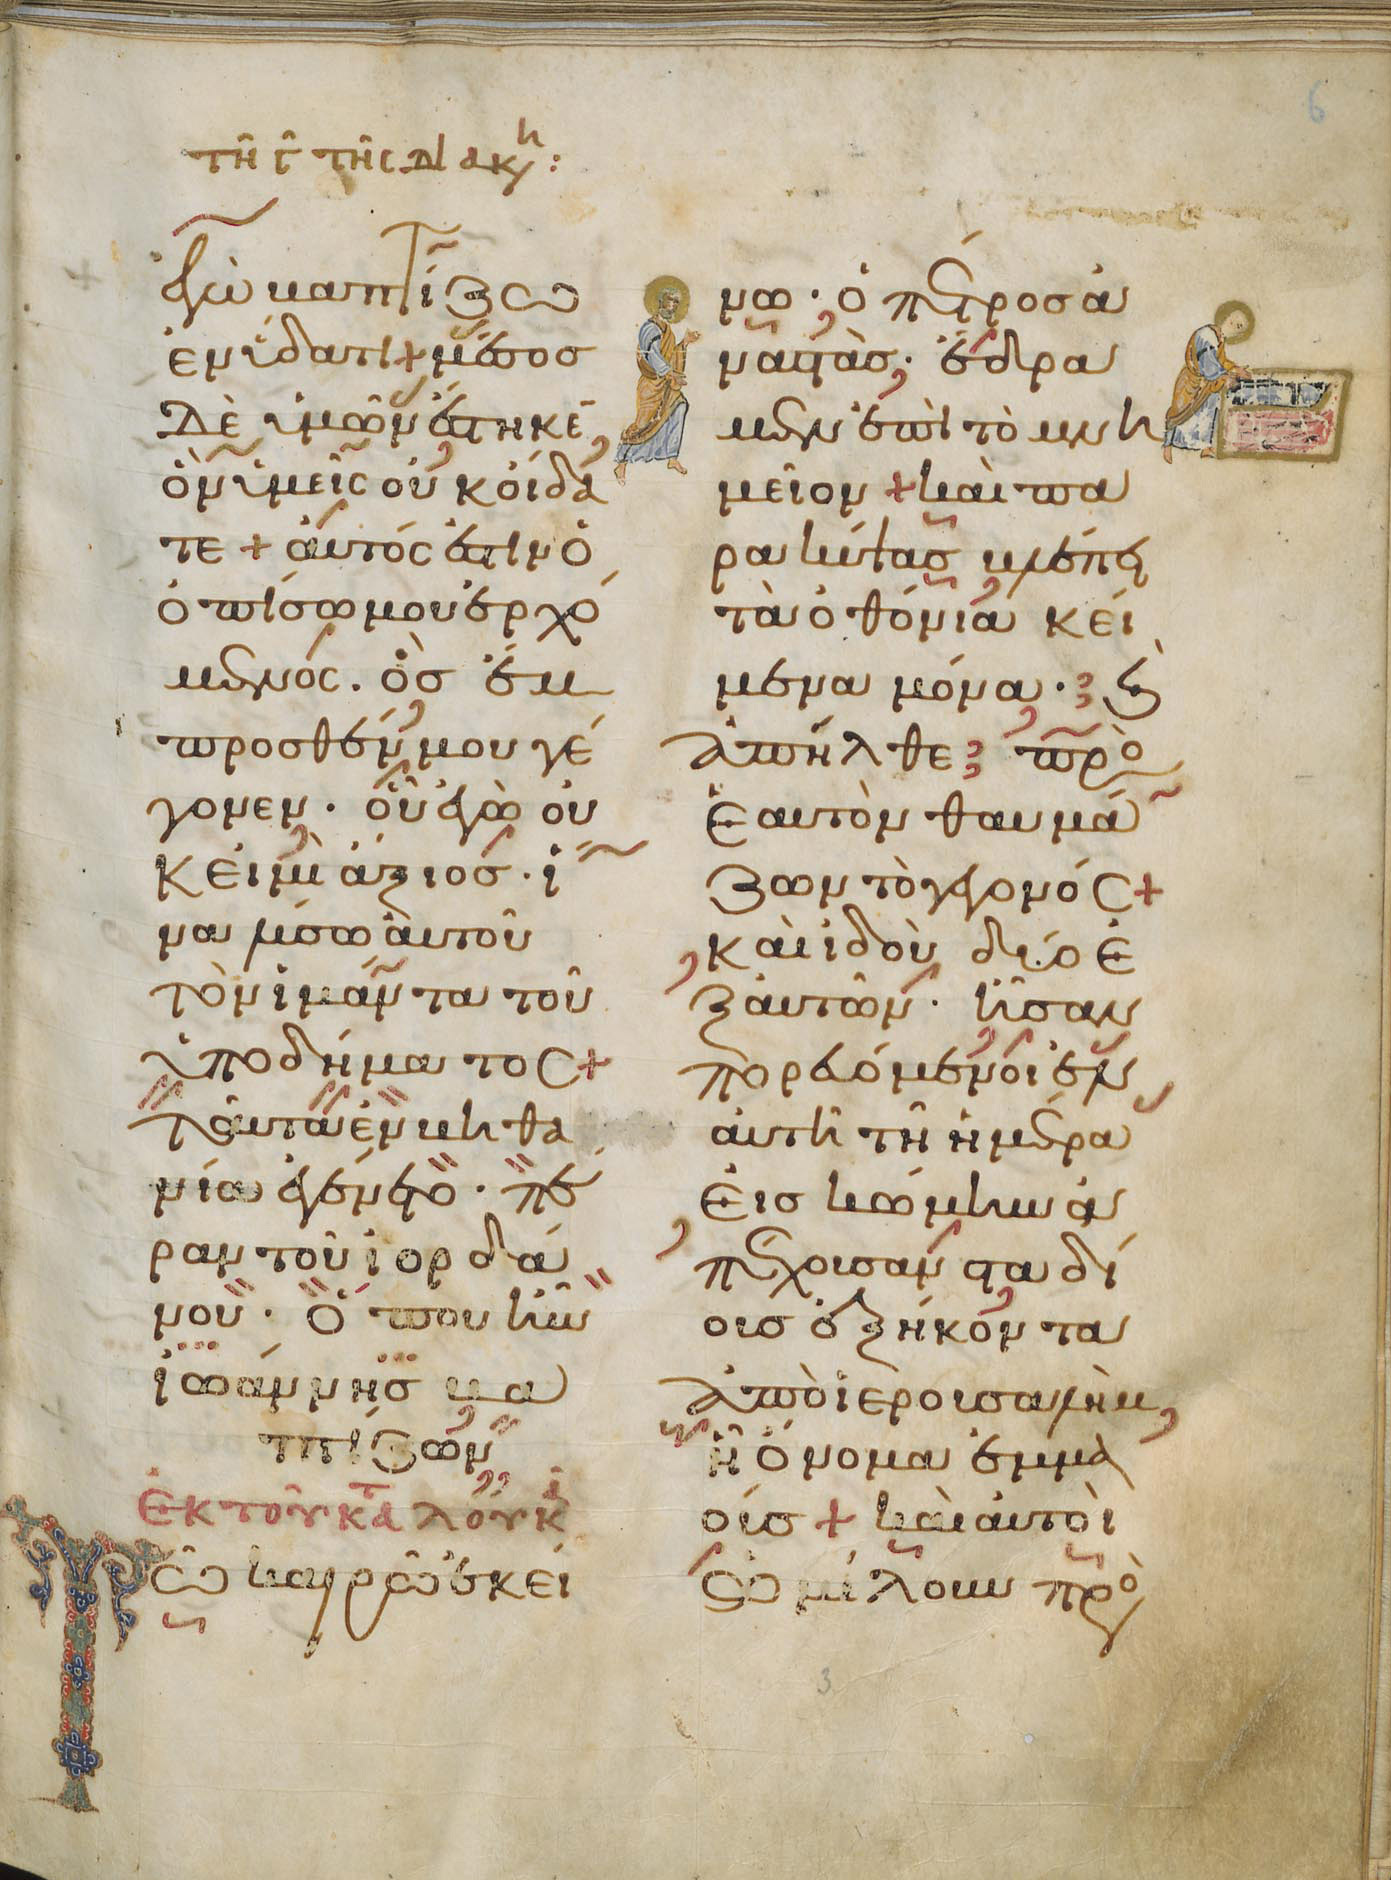 τῆ γ̄ τῆς διακη:
ἐγὼ βαπτίζω
ἐν ὕδατι + μέσος
δὲ ὑμῶν ἕστηκε
ὃν ὑμεῖς οὐκ οἴδα
τε + αὐτός ἐστιν ὁ
ὀπίσω μου ἐρχό
μενος. ὃς ἔμ
προσθέν μου γέ
γονεν. οὗ ἐγὼ οὐ
κ εἰμὶ ἄξιος. ἵ
να λύσω αὐτοῦ
τὸν ἱμάντα τοῦ
ὑποδήματος +
ταῦτα ἐν βηθα
νία ἐγένετο. πέ
ραν τοῦ ἰορδά
νου. ὅπου ἦν
ἰωάννης βα
πτίζων
ἐκ τοῦ κατὰ λουκ
Τῶ καιρῶ ἐκεί
νω. ὁ πέτρος ἀ
ναστὰς. ἔδρα
μεν ἐπὶ τὸ μνη
μεῖον + καὶ πα
ρακύψας βλέπει
τὰ ὀθόνια κεί
μενα μόνα. καὶ
ἀπῆλθε πρὸ
ἑαυτὸν θαυμά
ζων τὸ γεγονός +
καὶ ἰδοὺ δύο ἐ
ξ αὐτῶν. ἦσαν
πορευόμενοι ἐν
αὐτῆ τῆ ἡμέρα
εἰς κώμην ἀ
πέχουσαν σταδί
ους ἑξήκοντα
ἀπὸ ἱερουσαλὴμ
ἧ ὄνομα ἐμμα
οὺς + καὶ αὐτοὶ
ὡμίλουν πρὸ
6
3